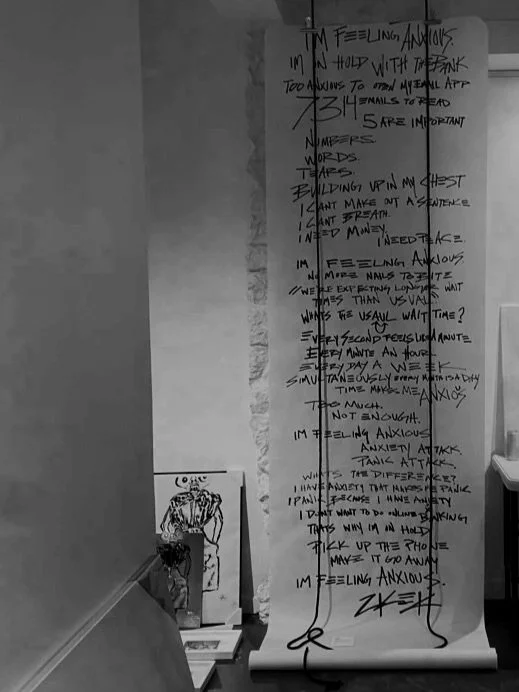 IM FEELING ANXIOUS.
IM ON HOLD WITH THE BANK
TOO ANXIOUS TO OPEN MY EMAIL APP
7314 EMAILS TO READ
5 ARE IMPORTANT
NUMBERS.
WORDS.
TEARS.
BUILDING UP IN MY CHEST
I CANT MAKE OUT A SENTENCE
I CANT BREATH.
I NEED MONEY.
I NEED PEACE.
IM FEELING ANXIOUS.
NO MORE NAILS TO BITE
"WE'RE EXPECTING LONGER WAIT
TIMES THAN USUAL"
WHATS THE USAUL WAIT TIME?
EVERY SECOND FEELS LIKE A MINUTE
EVERY MINUTE AN HOUR
EVERY DAY A WEEK
SIMULTANEOUSLY EVERY MONTH IS A DAY
TIME MAKES ME ANXIOUS
TOO MUCH.
NOT ENOUGH.
IM FEELING ANXIOUS
ANXIETY ATTACK.
PANIC ATTACK.
WHATS THE DIFFERENCE?
I HAVE ANXIETY THAT MAKES ME PANIC
I PANIC BECAUSE I HAVE ANXIETY
I DONT WANT TO DO ONLINE BANKING
THATS WHY IM ON HOLD
PICK UP THE PHONE
MAKE IT GO AWAY
IM FEELING ANXIOUS.